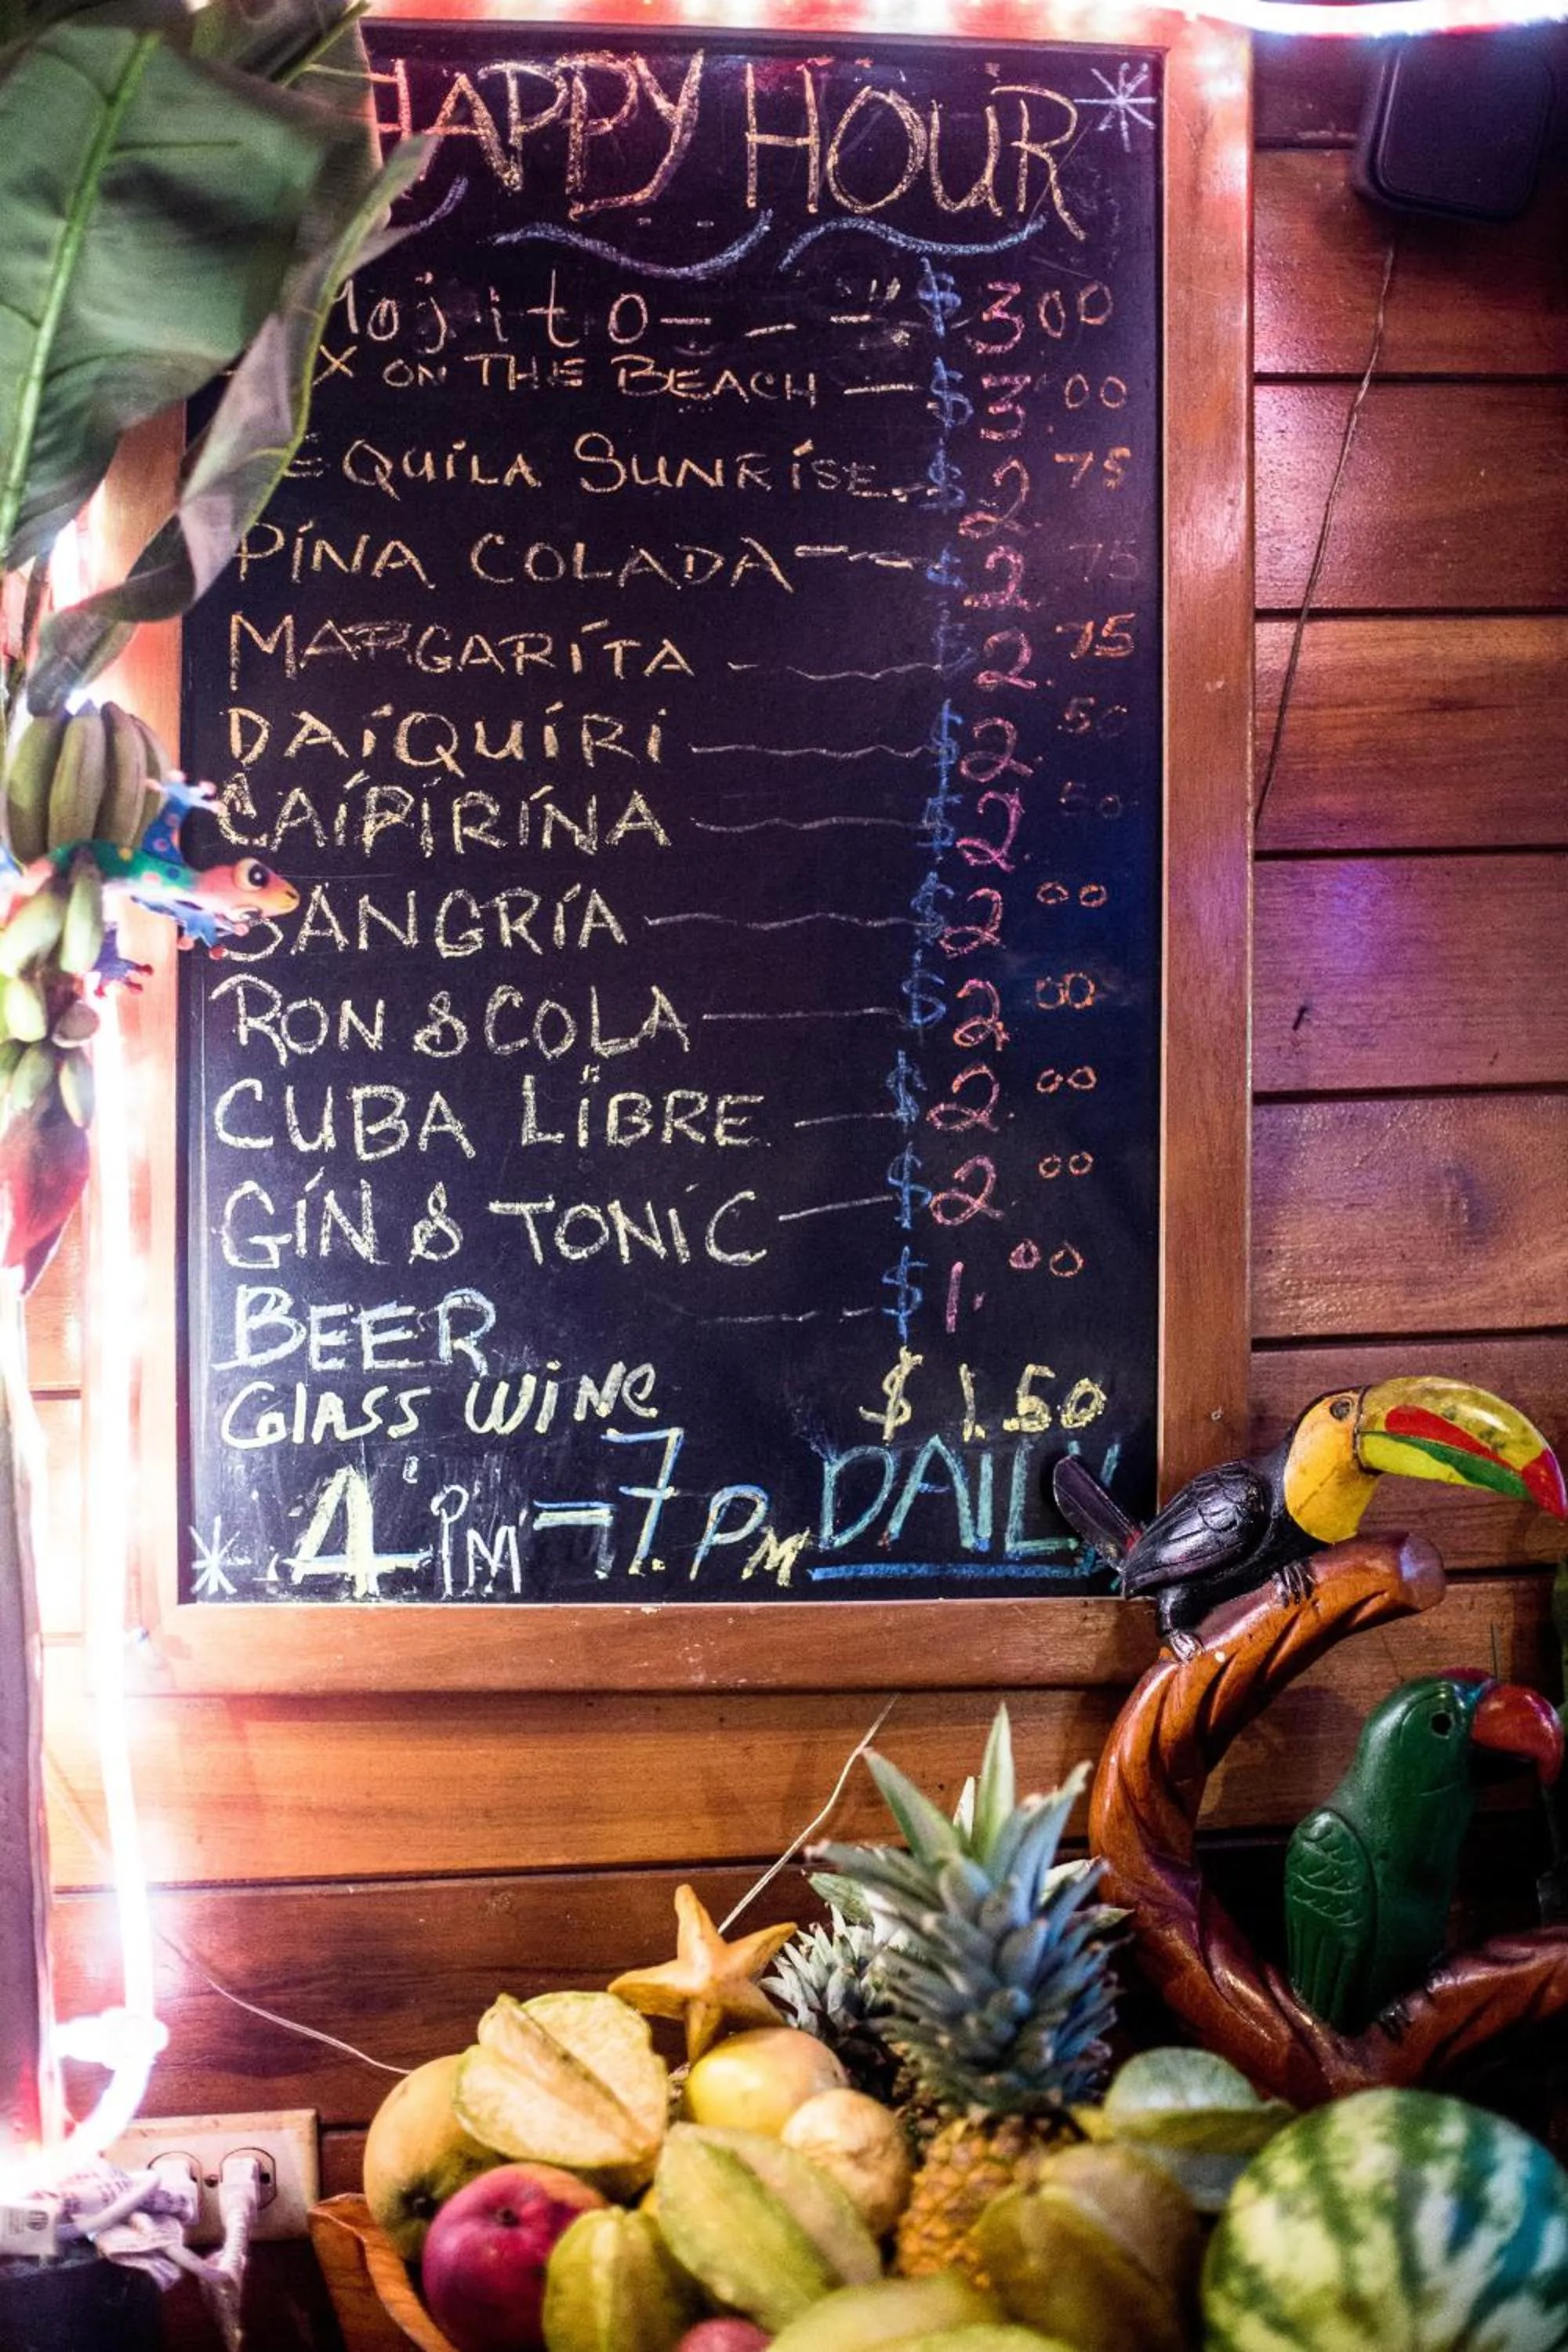 HAPPY HOUR
Mojito $3 00
X ON THE BEACH $3 00
EQUILA SUNRISE $2. 75
PINA COLADA $2. 75
MARGARITA $2. 75
DAIQUIRI $2. 50
CAIPIRINA $2. 50
SANGRIA $2. 00
RON & COLA $2. 00
CUBA LIBRE $2. 00
GIN & TONIC $2. 00
BEER $1. 00
GLASS WINE $1.50
4 PM - 7 PM DAILY